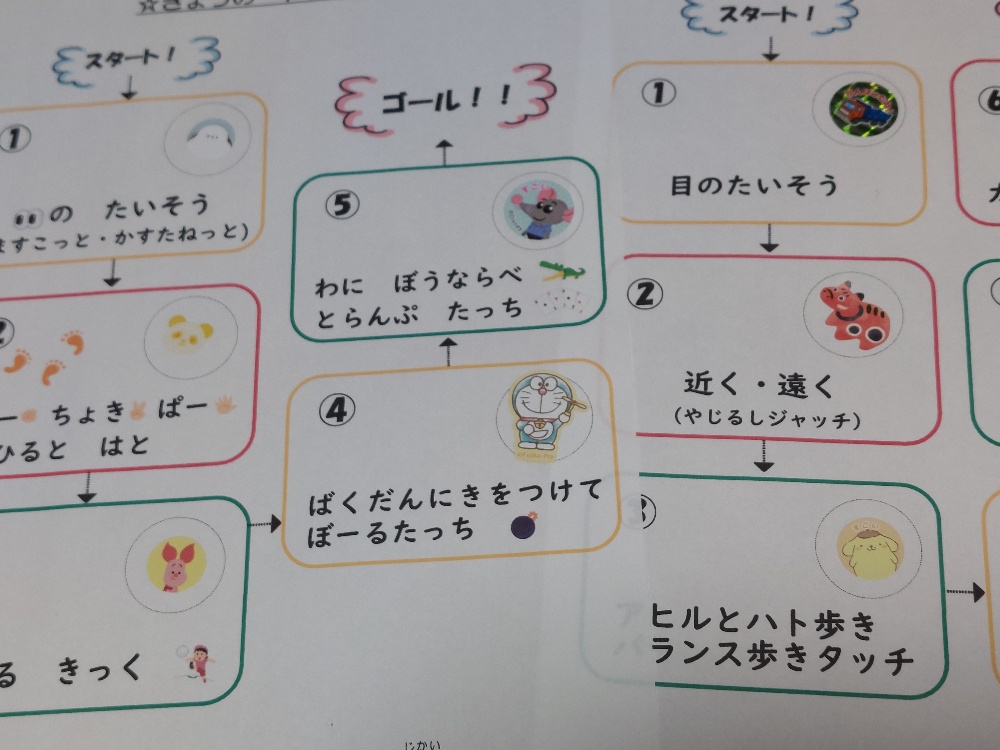 ☆きょうの
スタート！
①
の たいそう
ますこっと・かすたねっと)
ちょき ぱー
ひると はと
る きっく
④
ばくだんにきをつけて
ぼーるたっち
⑤
すごい
わに ぼうならべ
とらんぷ たっち
ゴール！！
じかい
スタート！
①
目のたいそう
②
近く・遠く
(やじるしジャッチ)
③
ヒルとハト歩き
ランス歩きタッチ
⑥